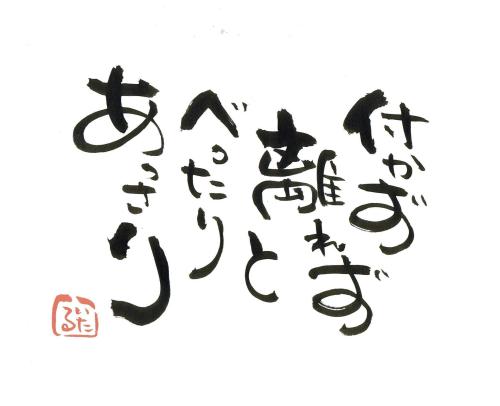 付かず
離れず
と
べったり
あっさり
いたる